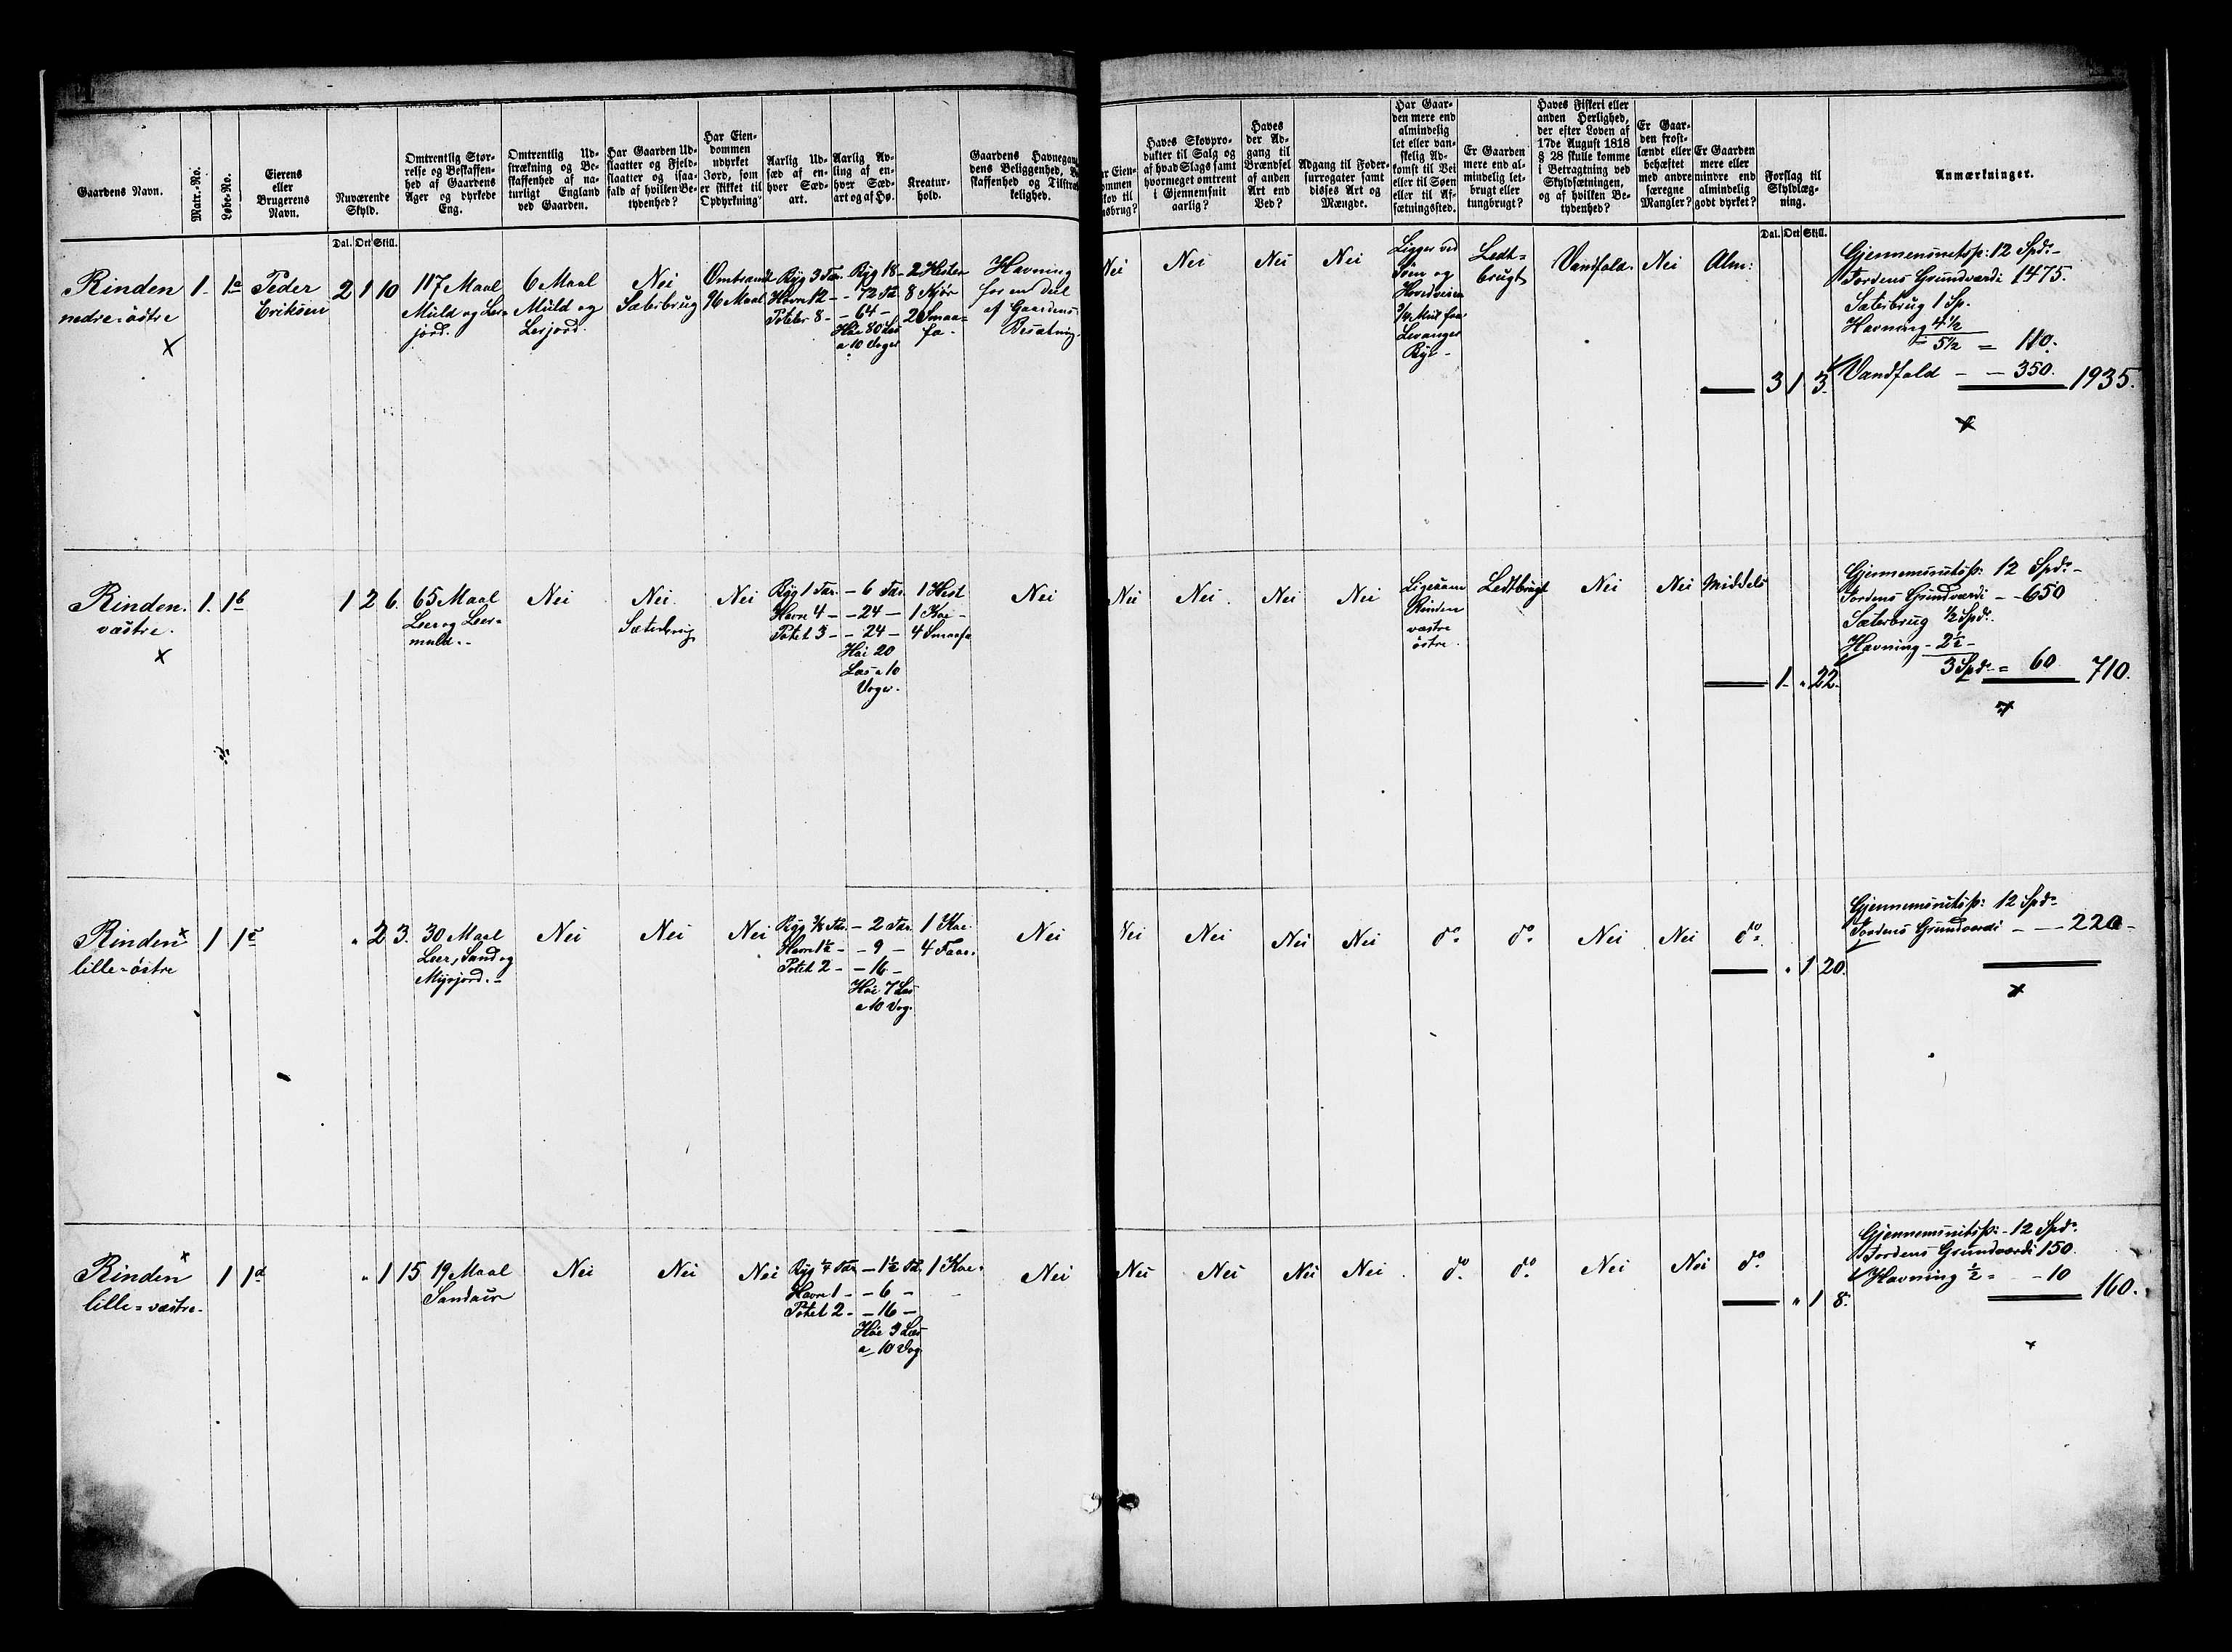 Gaardens Navn.
Matr.-No.
Løbe-No.
Eierens
eller
Brugerens
Navn.
Nuværende
Skyld.
Dal. Ort Skill.
Omtrentlig Stør-
relse og Beskaffen-
hed af Gaardens
Ager og dyrkede
Eng.
Omtrentlig Ud-
strækning og Be-
skaffenhed af na-
turligt England
ved Gaarden.
Har Gaarden Ud-
slaatter og Fjeld-
slaatter og isaa-
fald af hvilken Be-
tydenhed?
Har Eien-
dommen
udyrket
Jord, som
er skikket til
Opdyrkning?
Aarlig Ud-
sæd af en-
hver Sæd-
art.
Aarlig Av-
ling af en-
hver Sæd-
art og af Hø.
Kreatur-
hold.
Gaardens Havnegang,
dens Beliggenhed, Be-
skaffenhed og Tilstræk-
kelighed.
r Eien-
ommen
kov til
usbrug?
Haves Skovpro-
dukter til Salg og
af hvad Slags samt
hvormeget omtrent
i Gjennemsnit
aarlig?
Haves
der Ad-
gang til
Brændsel
af anden
Art end
Ved?
Adgang til Foder-
surrogater samt
disses Art og
Mængde.
Har Gaar-
den mere end
almindelig
let eller van-
skelig Ad-
komst til Vei
eller til Søen
eller til Af-
sætningssted.
Er Gaarden
mere end al-
mindelig let-
brugt eller
tungbrugt?
Haves Fiskeri eller
anden Herlighed,
der efter Loven af
17de August 1818
§ 28 skulle komme
i Betragtning ved
Skyldsætningen,
og af hvilken Be-
tydenhed?
Er Gaar-
den frost-
lændt eller
behæftet
med andre
særegne
Mangler?
Er Gaarden
mere eller
mindre end
almindelig
godt dyrket?
Forslag til
Skyldlæg-
ning.
Dal. Ort Skill.
Anmærkninger.
Rinden
nedre=østre
x
1
1a
Peder
Eriksen
2 1 10
117 Maal
Muld og Leer
jord.
6 Maal
Muld og
Lerjord.
Nei
Sæterbrug
Omtrændt
96 Maal
Byg 3 Tdr.
Havre 12 -
Poteter 8 -
Byg 18 -
- 72 Td
- 64 -
Høe 80 Læs
a 10 Voger
2 Heste
8 Kjør
20 Smaa=
fæ -
Havning
for en Deel
af Gaardens
Besætning.
Nei
Nei
Nei
Nei
Ligger ved
Søen og
Hovedveien
3/4 Miil fra
Levanger
By -
Ledt=
brugt
Vandfald.
Nei
Alm:
3 1 3
Gjennemsnitsp: 12 Spd. -
Jordens Grundværdi 1475.
Sæterbrug 1 Sp.
Havning 4 1/2
5 1/2 = 110.
Vandfald - - 350. 1935.
x
Rinden.
væstre.
x
1.
1b
1 2 6
65 Maal
Leer og Leer=
muld. -
Nei
Nei.
Sæterbrug
Nei
Byg 1 Tdr.
Havre 4 -
Potet 3 -
- 6 Tdr.
- 24 -
- 24 -
Høi 20
Læs a 10
Voger.
1 Hest
1 Koe -
4 Smaafæ
Nei
Nei
Nei.
Nei
Nei
Ligesom
Rinden
østre.
Ledtbrugt
Nei
Nei
Middels
1 " 22
Gjennemsnitsp: 12 Spd. -
Jordens Grundværdi - - 650
Sæterbrug 1/2 Spd.
Havning - 2 1/2 -
3 Spd. = 60 710.
x
Rinden x
lille=østre
1
1c
" 2 3.
30 Maal
Leer, Sand og
Myrjord. -
Nei
Nei
Nei
- 2 Tdr.
Havre 1 1/2 -
Potet 2 -
- 9 -
- 16 -
Høe 7 Læs
a 10 Vog.
1 Koe
4 Faar.
Nei
Nei
Nei
Nei
Nei
do.
do.
Nei
Nei
do.
" 1 20.
Gjennemsnitsp: 12 Spd.
Jordens Grundværdi - - 220 -
x
Rinden x
lille=væstre.
1
1d
" 1 15
19 Maal
Sandaur
Nei
Nei
Nei
- 1 1/2 Td.
Havre 1 -
Potet 2 -
- 6 -
- 16 -
Høe 3 Læs
a 10 Vog.
1 Koe.
Nei
Nei
Nei
Nei
Nei
do.
do.
Nei
Nei
do.
" 1 8.
Gjennemsnitsp: - 12 Spd.
Jordens Grundværdi 150.
Havning 1/2 = - 10 160.
x